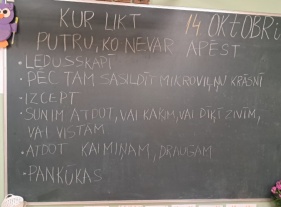 KUR LIKT 14 OKTOBRī
PUTRU, KO NEVAR APĒST
• LEDUSSKAPĪ
• PĒC TAM SASILDĪT MIKROVIĻŅU KRĀSNĪ
• IZCEPT
• SUNIM ATDOT, VAI KAĶIM, VAI DĪĶĪ ZIVĪM,
VAI VISTĀM
• ATDOT KAIMIŅAM, DRAUGAM
• PANKŪKAS